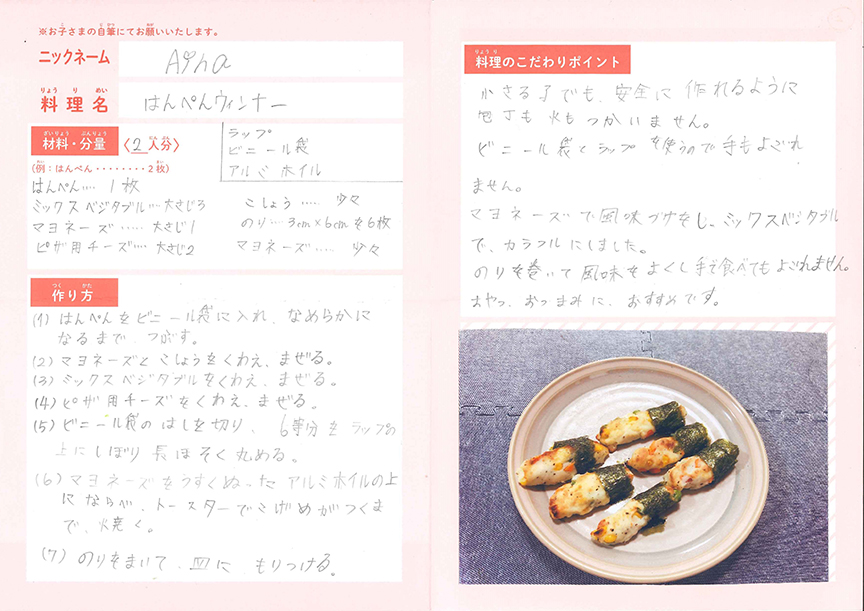 ※お子さまの自筆にてお願いいたします。
ニックネーム Aina
料理名 はんぺんウィンナー
材料・分量 〈2人分〉
ラップ
ビニール袋
アルミホイル
(例:はんぺん・・・・・・・・2枚)
はんぺん…. 1枚
ミックスベジタブル…. 大さじ3
マヨネーズ ‥‥‥ 大さじ1
ピザ用チーズ…. 大さじ2
こしょう ‥‥‥ 少々
のり ‥‥ 3cm×6cmを6枚
マヨネーズ ‥‥ 少々
作り方
(1) はんぺんをビニール袋に入れ、なめらかに
なるまで、つぶす。
(2) マヨネーズとこしょうをくわえ、まぜる。
(3) ミックスベジタブルをくわえ、まぜる。
(4) ピザ用チーズをくわえ、まぜる。
(5) ビニール袋のはしを切り、6等分をラップの
上にしぼり長ほそく丸める。
(6) マヨネーズをうすくぬったアルミホイルの上
にならべ、トースターでこげめがつくま
で、焼く。
(7) のりをまいて、皿に、もりつける。
料理のこだわりポイント
小さな子でも、安全に作れるように
包丁も火もつかいません。
ビニール袋とラップを使うので手もよごれ
ません。
マヨネーズで風味づけをし、ミックスベジタブル
で、カラフルにしました。
のりを巻いて風味をよくし手で食べてもよごれません。
おやつ、おつまみに、おすすめです。